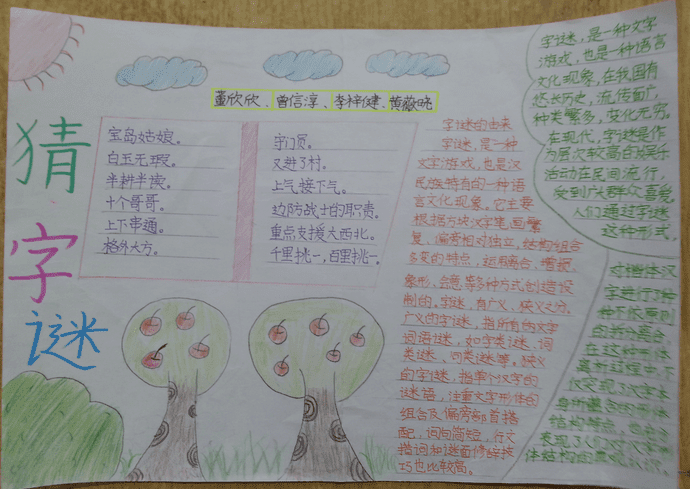 猜字谜
董欣欣、曾信淳、李梓健、黄薇
宝岛姑娘。
白玉无瑕。
半耕半读。
十个哥哥。
上下串通。
格外大方。
守门员。
又进了村。
上气接下气。
边防战士的职责。
重点支援大西北。
千里挑一,百里挑一。
字谜的由来
字谜,是一种
文字游戏,也是汉
民族特有的一种语
言文化现象。它主要
根据方块汉字笔画繁
复、偏旁相对独立,结构组合
多变的特点,运用离合、增损、
象形、会意等多种方式创造设
制的。字谜,有广义、狭义之分。
广义的字谜,指所有的文字
词语谜,如字类谜、词
类谜、句类谜等。狭义
的字谜,指单个汉字的
谜语,注重文字形体的
组合及偏旁部首搭
配,词句简短,行文
措词和谜面修辞技
巧也比较高。
字谜,是一种文字
游戏,也是一种语言
文化现象。在我国有
悠长历史,流传面广,
种类繁多,变化无穷。
在现代,字谜是作
为层次较高的娱乐
活动在民间流行,
受到广大群众喜爱。
人们通过字谜
这种形式,
对楷体汉
字进行了各
种不依原则
的拆拼离合,
在这种形体
离析过程中,不
仅表现了汉字本
身所蕴含的形体
结构特点,也

体结构的